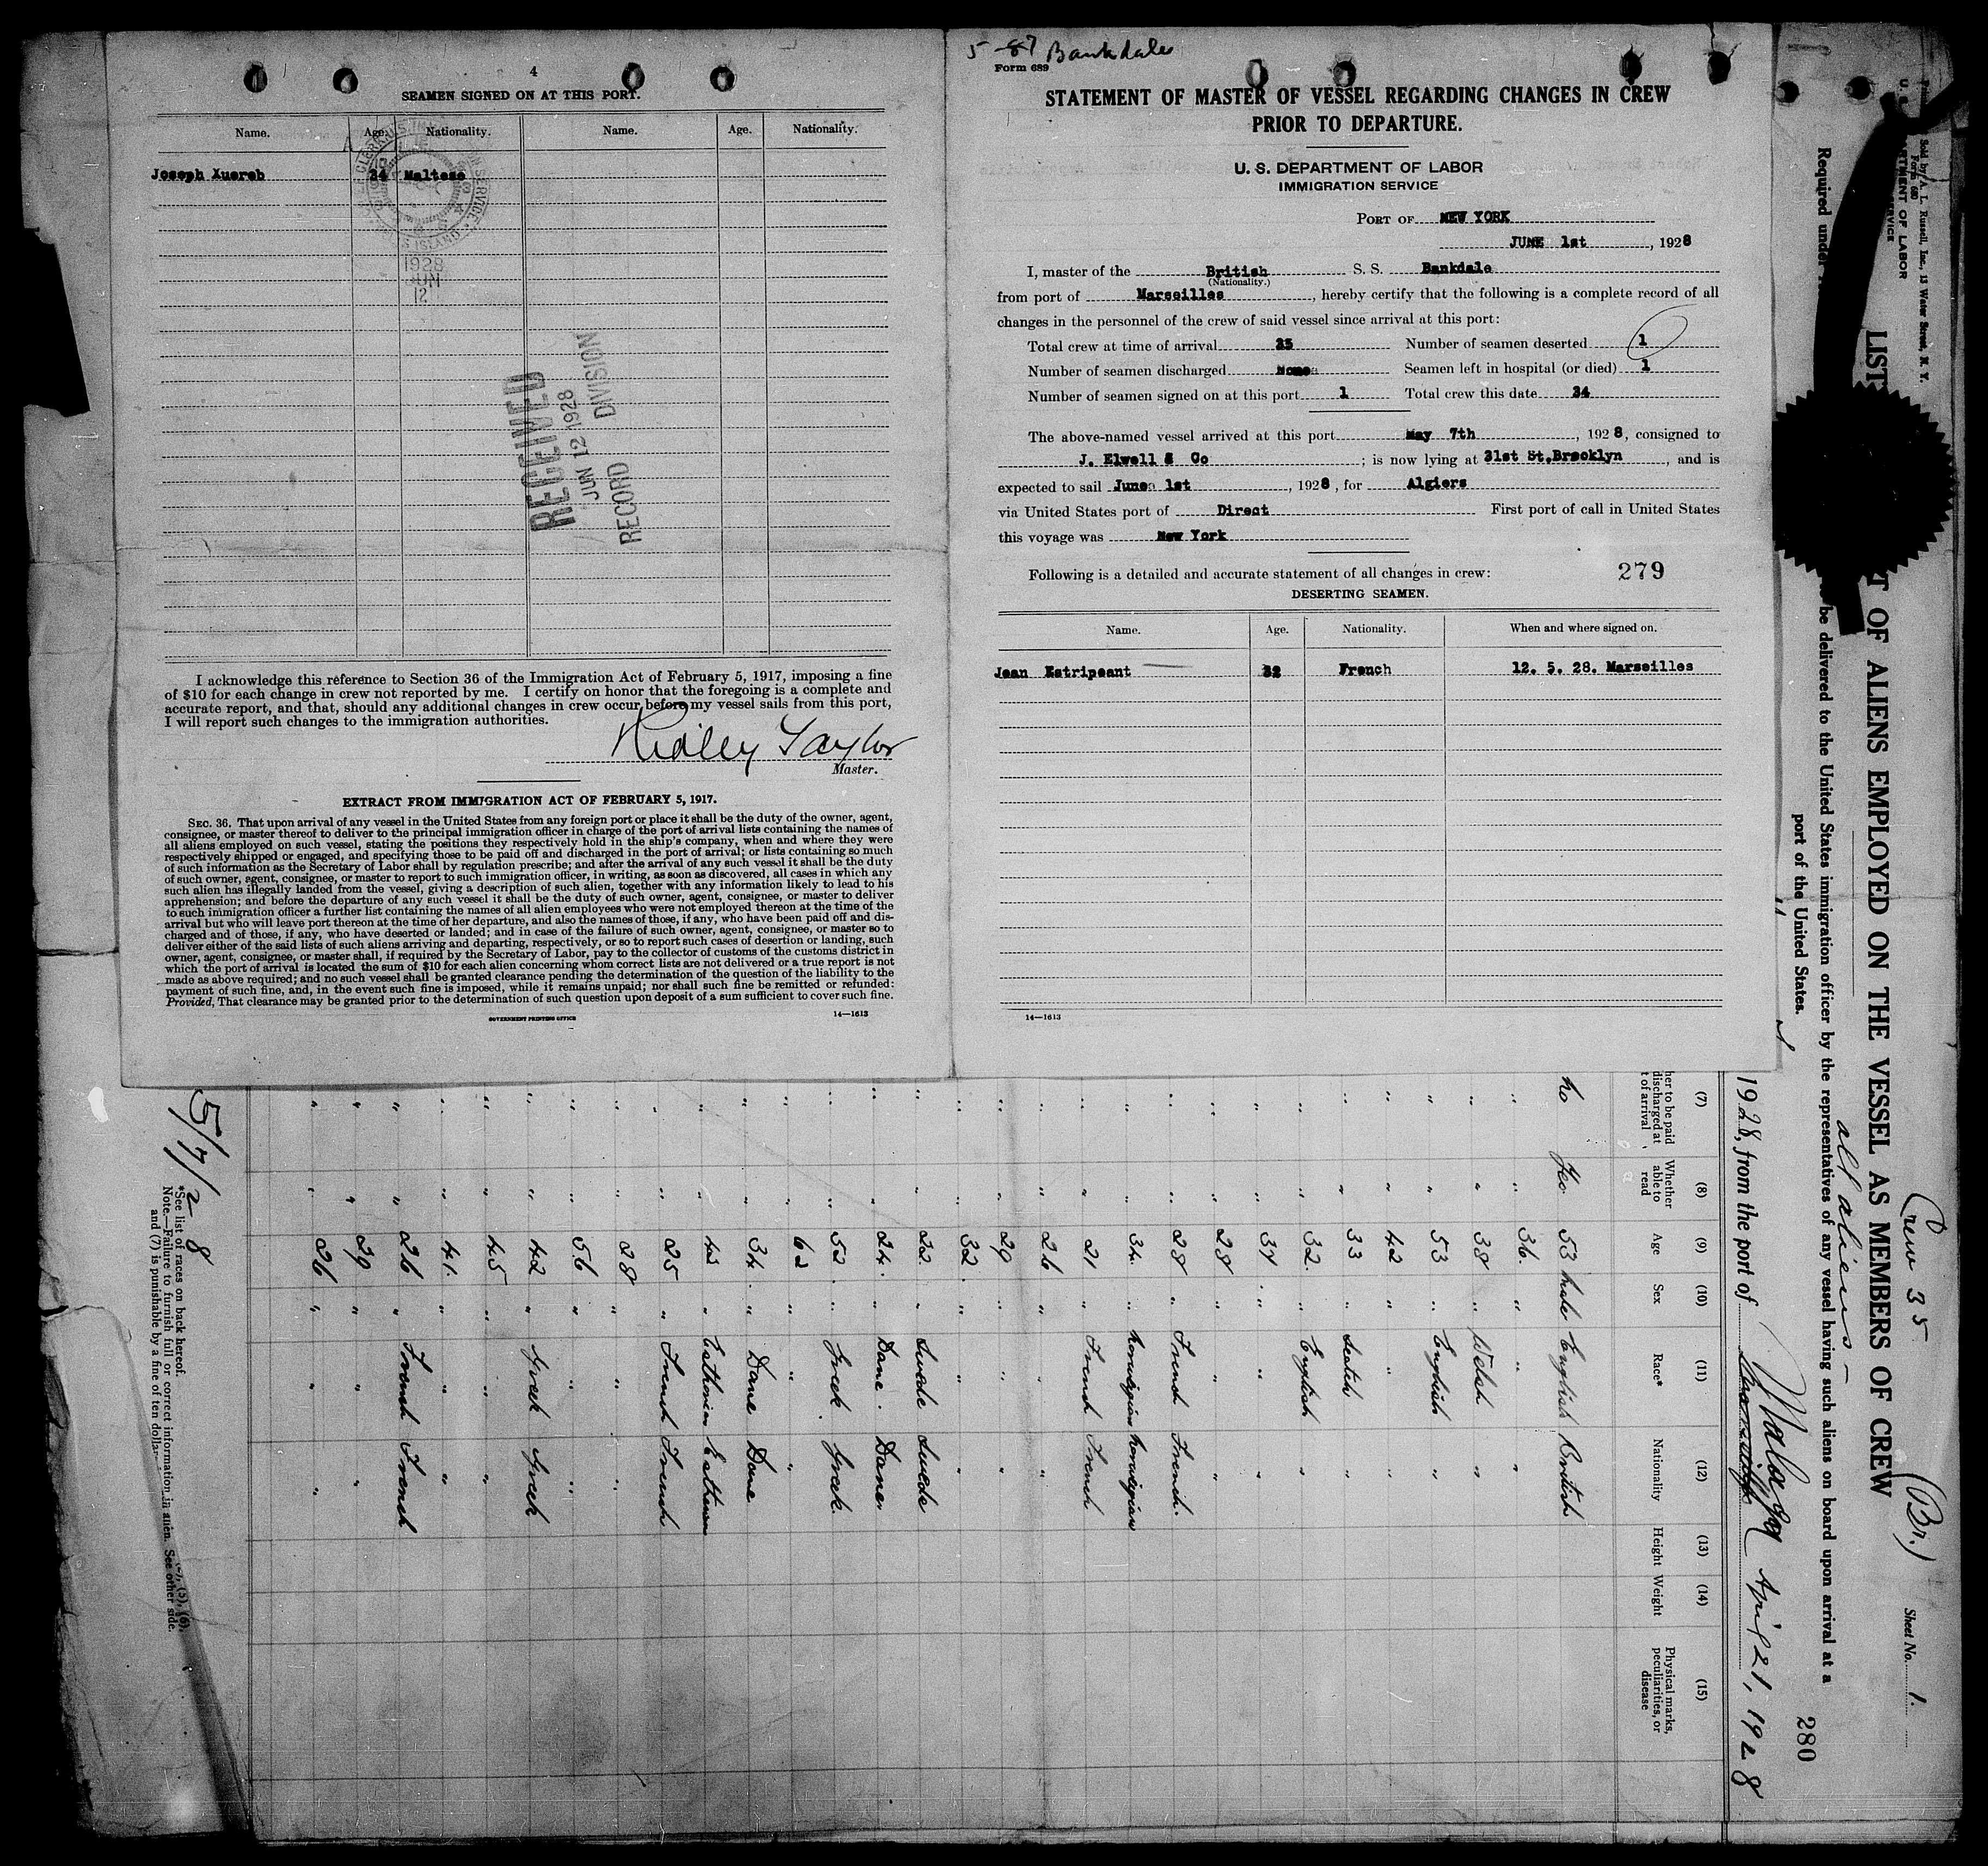 4
SEAMEN SIGNED ON AT THIS PORT.
Name. Age. Nationality. Name. Age. Nationality.
Joseph Xuereb 24 Maltese
1928
JUN
12
RECEIVED
JUN 12 1928
RECORD DIVISION
I acknowledge this reference to Section 36 of the Immigration Act of February 5, 1917, imposing a fine
of $10 for each change in crew not reported by me. I certify on honor that the foregoing is a complete and
accurate report, and that, should any additional changes in crew occur before my vessel sails from this port,
I will report such changes to the immigration authorities.
Ridley Taylor
Master.
EXTRACT FROM IMMIGRATION ACT OF FEBRUARY 5, 1917.
SEC. 36. That upon arrival of any vessel in the United States from any foreign port or place it shall be the duty of the owner, agent,
consignee, or master thereof to deliver to the principal immigration officer in charge of the port of arrival lists containing the names of
all aliens employed on such vessel, stating the positions they respectively hold in the ship's company, when and where they were
respectively shipped or engaged, and specifying those to be paid off and discharged in the port of arrival; or lists containing so much
of such information as the Secretary of Labor shall by regulation prescribe; and after the arrival of any such vessel it shall be the duty
of such owner, agent, consignee, or master to report to such immigration officer, in writing, as soon as discovered, all cases in which any
such alien has illegally landed from the vessel, giving a description of such alien, together with any information likely to lead to his
apprehension; and before the departure of any such vessel it shall be the duty of such owner, agent, consignee, or master to deliver
to such immigration officer a further list containing the names of all alien employees who were not employed thereon at the time of the
arrival but who will leave port thereon at the time of her departure, and also the names of those, if any, who have been paid off and dis-
charged and of those, if any, who have deserted or landed; and in case of the failure of such owner, agent, consignee, or master so to
deliver either of the said lists of such aliens arriving and departing, respectively, or so to report such cases of desertion or landing, such
owner, agent, consignee, or master shall, if required by the Secretary of Labor, pay to the collector of customs of the customs district in
which the port of arrival is located the sum of $10 for each alien concerning whom correct lists are not delivered or a true report is not
made as above required; and no such vessel shall be granted clearance pending the determination of the question of the liability to the
payment of such fine, and, in the event such fine is imposed, while it remains unpaid; nor shall such fine be remitted or refunded:
Provided, That clearance may be granted prior to the determination of such question upon deposit of a sum sufficient to cover such fine.
GOVERNMENT PRINTING OFFICE 14—1613
5-87 Bankdale
Form 689
STATEMENT OF MASTER OF VESSEL REGARDING CHANGES IN CREW
PRIOR TO DEPARTURE.
U. S. DEPARTMENT OF LABOR
IMMIGRATION SERVICE
PORT OF NEW YORK
JUNE 1st, 1928
I, master of the British S. S. Bankdale
(Nationality.)
from port of Marseilles, hereby certify that the following is a complete record of all
changes in the personnel of the crew of said vessel since arrival at this port:
Total crew at time of arrival 35 Number of seamen deserted 1
Number of seamen discharged None Seamen left in hospital (or died) 1
Number of seamen signed on at this port 1 Total crew this date 34
The above-named vessel arrived at this port May 7th, 1928, consigned to
J. Elwell & Co; is now lying at 31st St.Brooklyn, and is
expected to sail June 1st, 1928, for Algiers
via United States port of Direct First port of call in United States
this voyage was New York
Following is a detailed and accurate statement of all changes in crew: 279
DESERTING SEAMEN.
Name. Age. Nationality. When and where signed on.
Jean Estripeant 32 French 12. 5. 28. Marseilles
14—1613
Sold by A. L. Russell, Inc., 13 Water Street, N. Y.
Form 680
Crew 35 (Br.) Sheet No. 1.
LIST OF ALIENS EMPLOYED ON THE VESSEL AS MEMBERS OF CREW
all aliens
Required under
be delivered to the United States immigration officer by the representatives of any vessel having such aliens on board upon arrival at a
port of the United States.
280
1928, from the port of Marseilles Malaga April 21, 1928
(7) (8) (9) (10) (11) (12) (13) (14) (15)
her to be paid discharged at t of arrival Whether able to read Age Sex Race* Nationality Height Weight Physical marks, peculiarities, or disease
no Yes 53 male English British
" " 36. " " "
" " 38 " Welsh "
" " 53 " English "
" " 42 " " "
" " 33 " Scotch "
" " 32 " English "
" " 37 " " "
" " 28 " " "
" " 28 " French French.
" " 34. " Norwegian Norwegian
" " 21 " French French
" " 26 " " "
" " 29 " " "
" " 32 " " "
" " 22 " Swede Swede
" " 24. " Dane. Dane.
" " 52. " Greek. Greek.
" " 62 " " "
" " 34. " Dane Dane
" " 43 " Esthonian Esthonian
" " 25 " French French
" " 28 " " "
" " 56 " " "
" " 42 " Greek Greek
" " 45 " " "
" " 41. " " "
" " 26 " French French
" " 29 " " "
" " 26 " " "
5/7/28
*See list of races on back hereof.
Note.—Failure to furnish full or correct information in
and (7) is punishable by a fine of ten dollar
See other side.